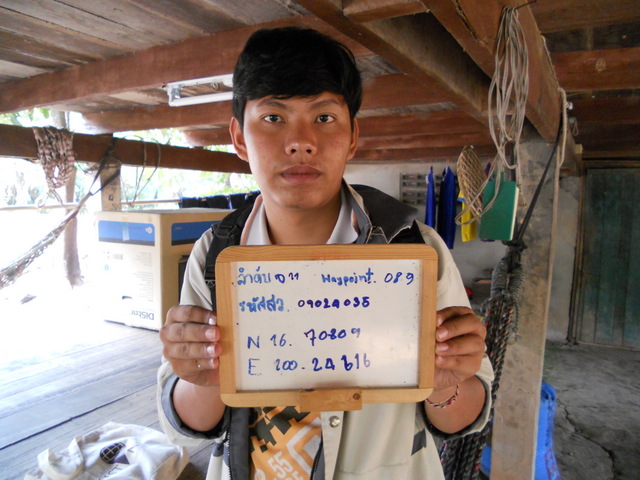 ลำดับ ๑ 11 Waypoint. 089
รหัสสว. 09024035
N 16. 70809
E 100. 24616